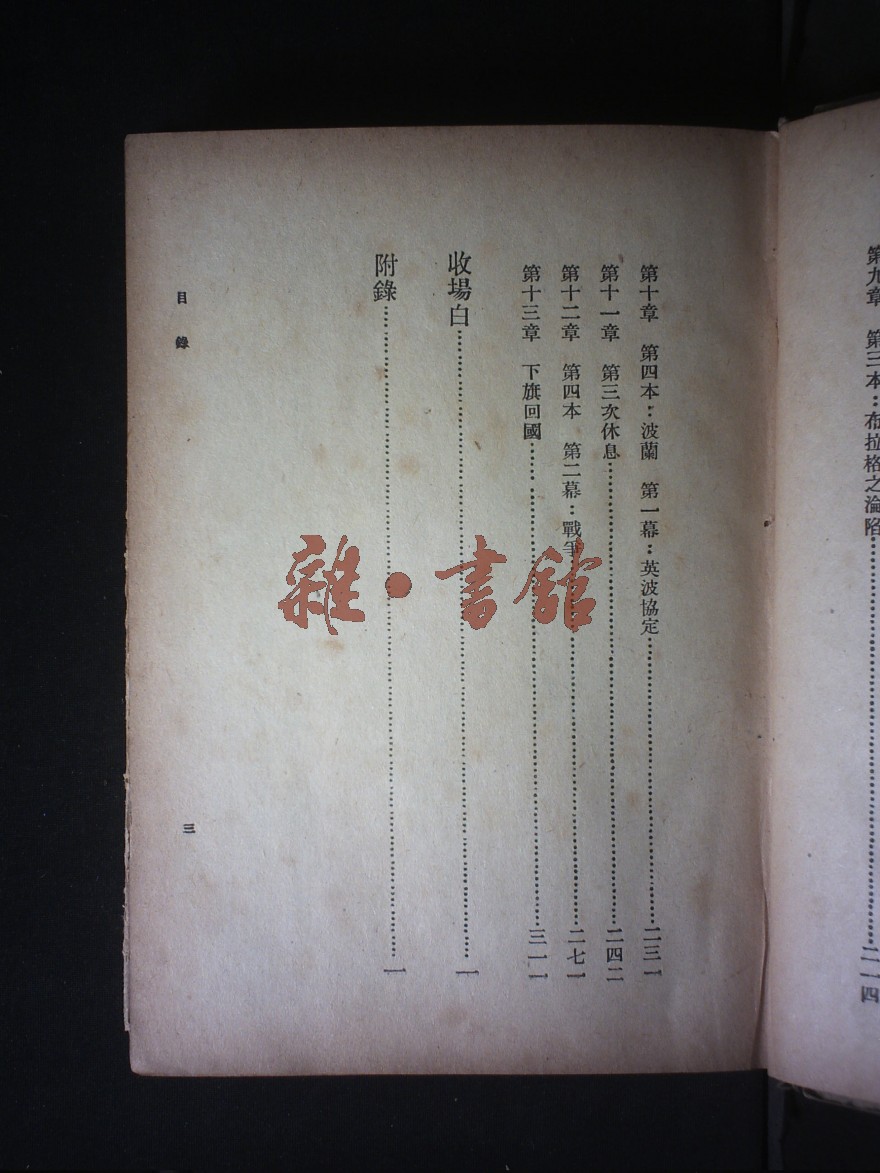 第九章　第三本：布拉格之淪陷……二一四
第十章　第四本：波蘭　第一幕：英波協定……二三一
第十一章　第三次休息……二四二
第十二章　第四本　第二幕：戰爭……二七一
第十三章　下旗回國……三一一
收場白……一
附錄……一
目錄
三
雜·書館